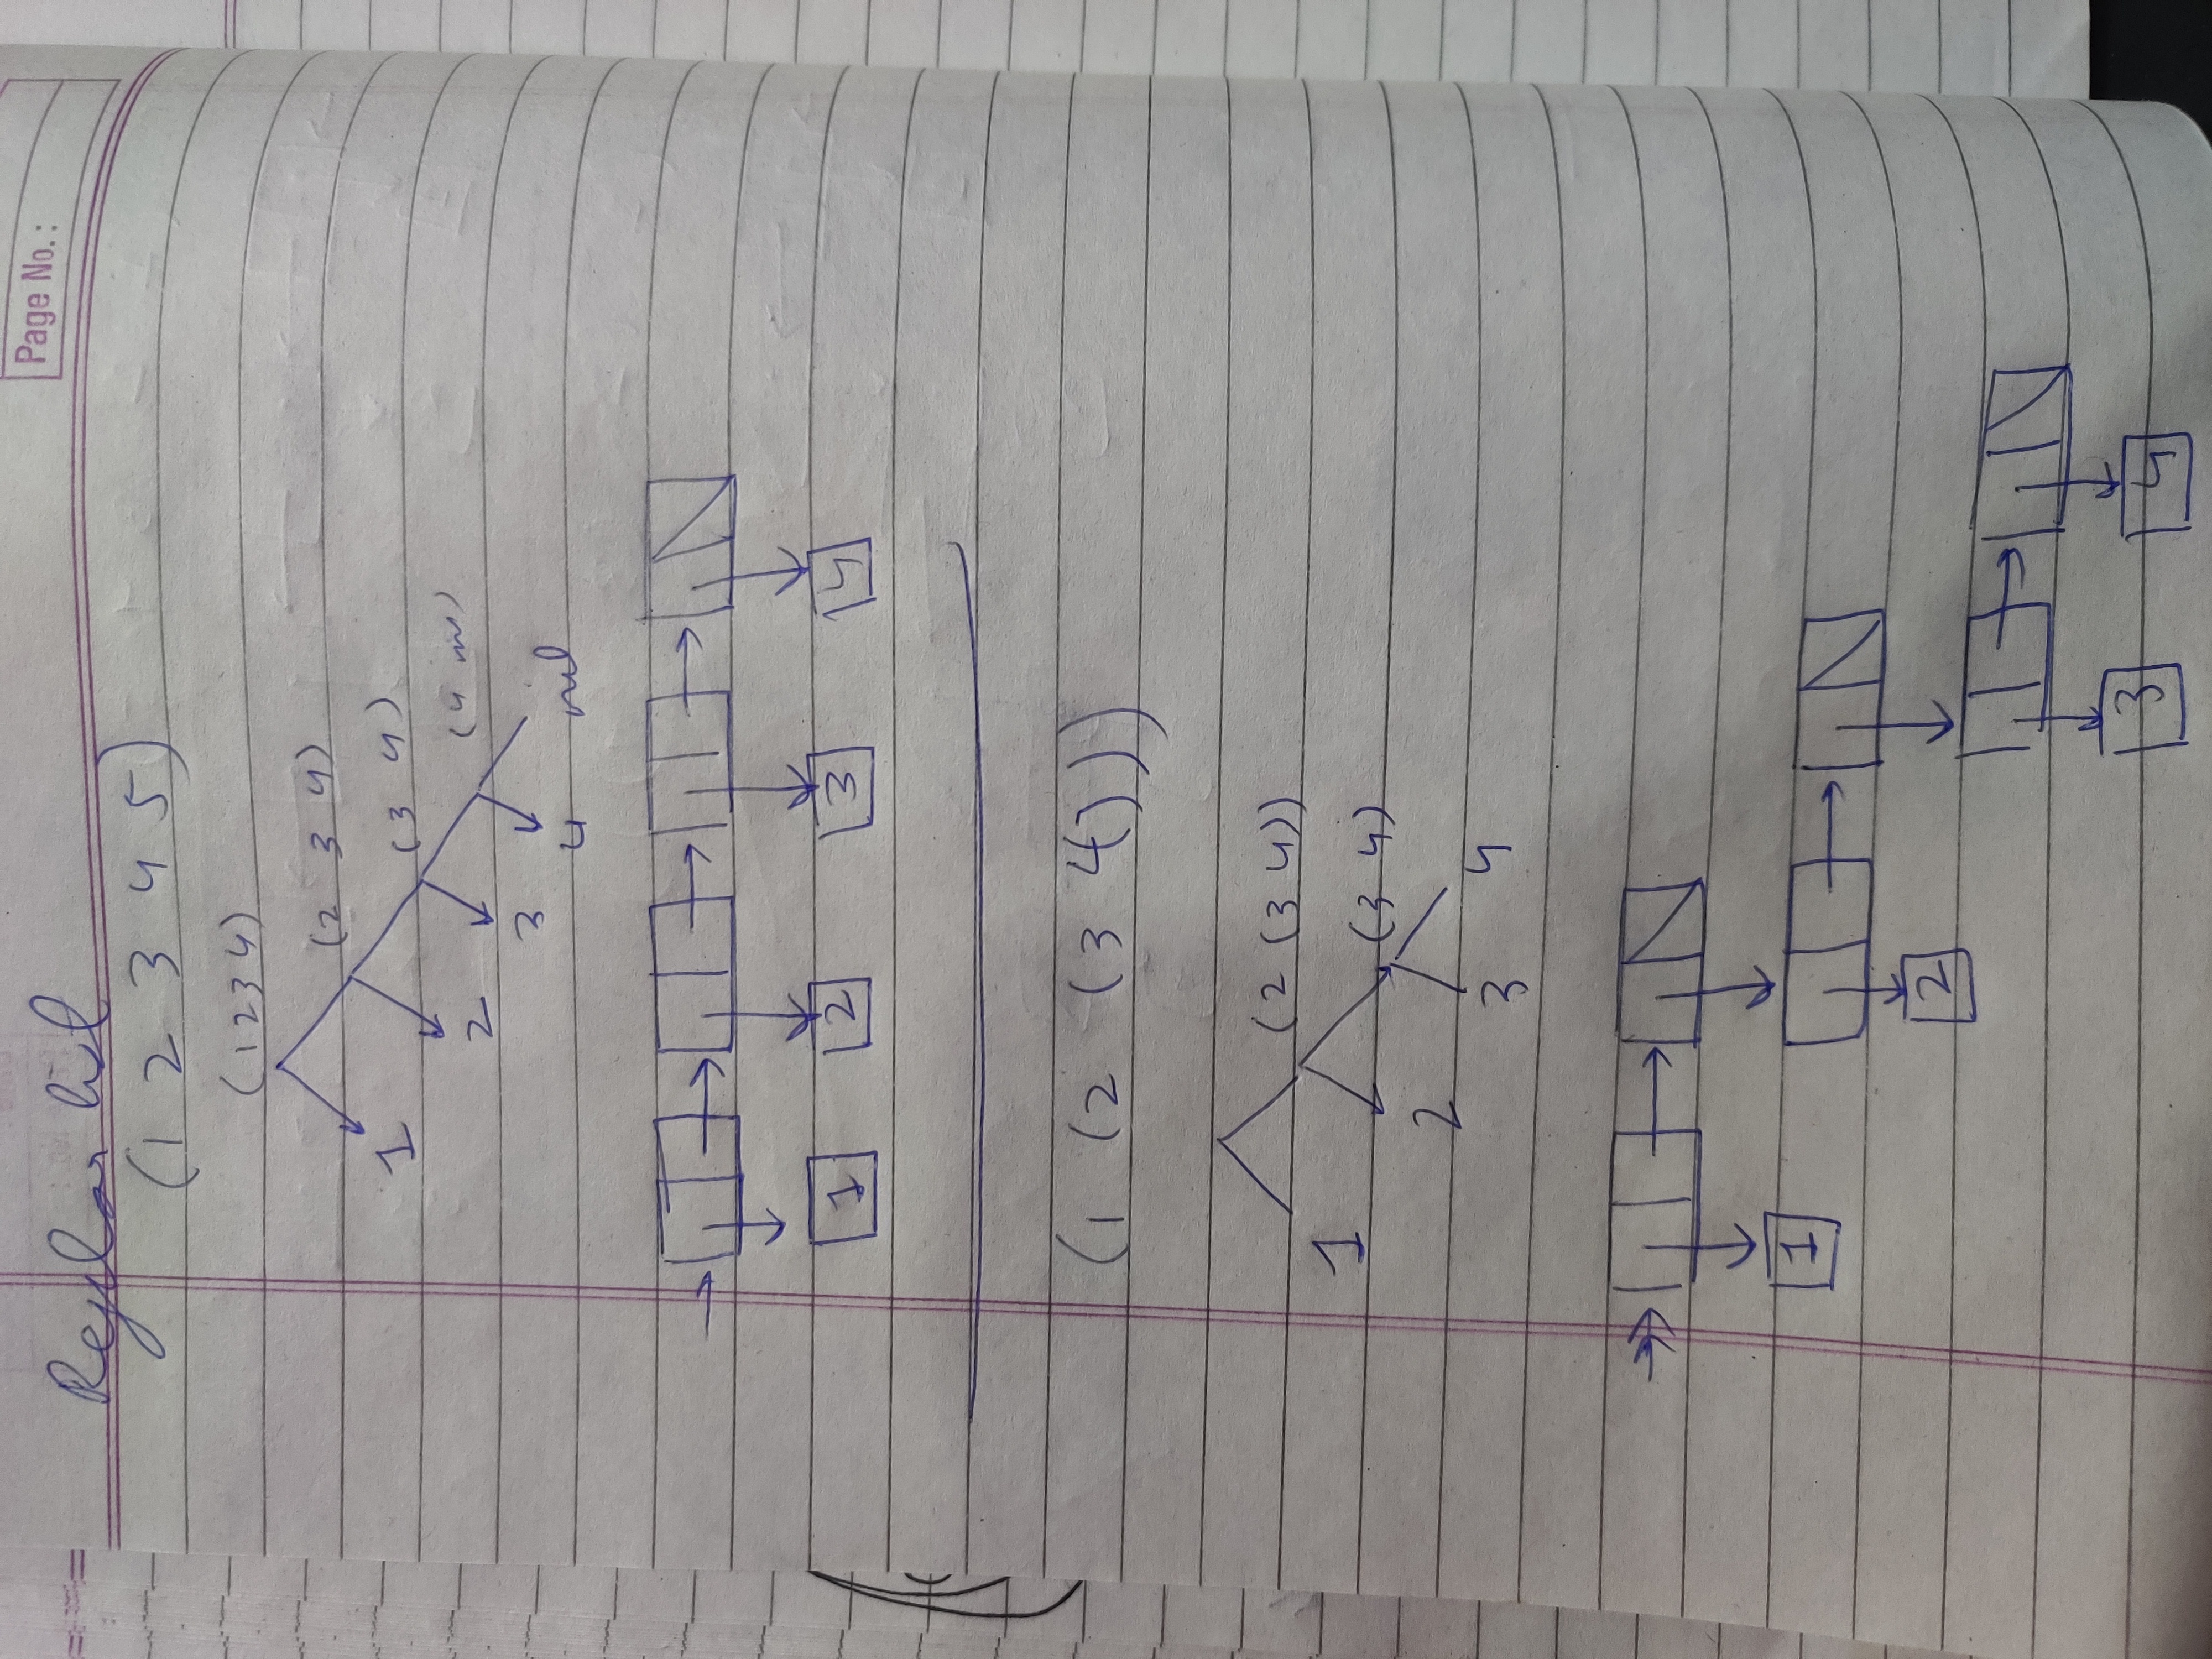 Page No.:
Regular list
(1 2 3 4 5)
(1 2 3 4)
(2 3 4)
1
(3 4)
2
(4 nil)
3
4 nil
1 2 3 4
(1 (2 (3 4)))
(2 (3 4))
1
(3 4)
2
3 4
1
2
3 4